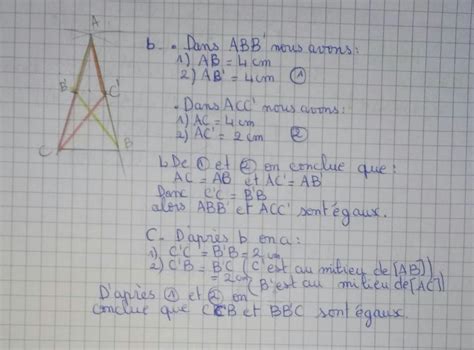 A
B' C'
C B
b. • Dans ABB' nous avons:
1) AB = 4 cm
2) AB' = 4 cm ①
• Dans ACC' nous avons:
1) AC = 4 cm
2) AC' = 2 cm ②
b. De ① et ② on conclue que:
AC = AB et AC' = AB'
Donc C'C = B'B
alors ABB' et ACC' sont égaux.
C. D'après b on a:
1) C'C = B'B = 2 cm
2) C'B = B'C (C' est au milieu de [AB])
= 2 cm (B' est au milieu de [AC])
D'après ① et ② on
conclue que CC'B et BB'C sont égaux.